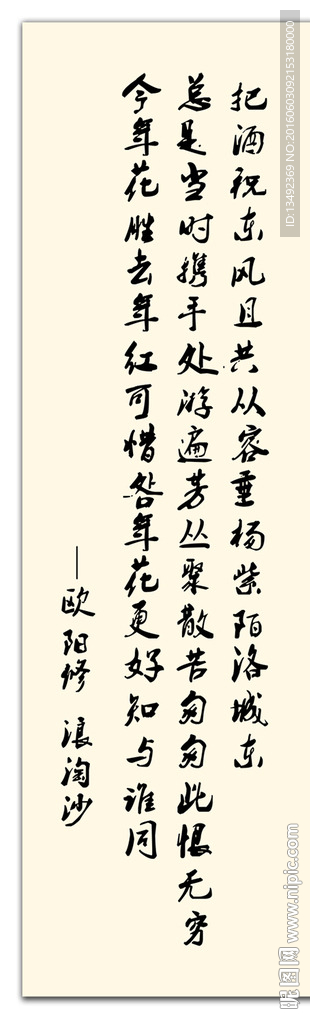 把酒祝东风且共从容垂杨紫陌洛城东
总是当时携手处游遍芳丛聚散苦匆匆此恨无穷
今年花胜去年红可惜咎年花更好知与谁同
—欧阳修 浪淘沙
ID:13492369 NO:20160603092153180000
昵图网 www.nipic.com